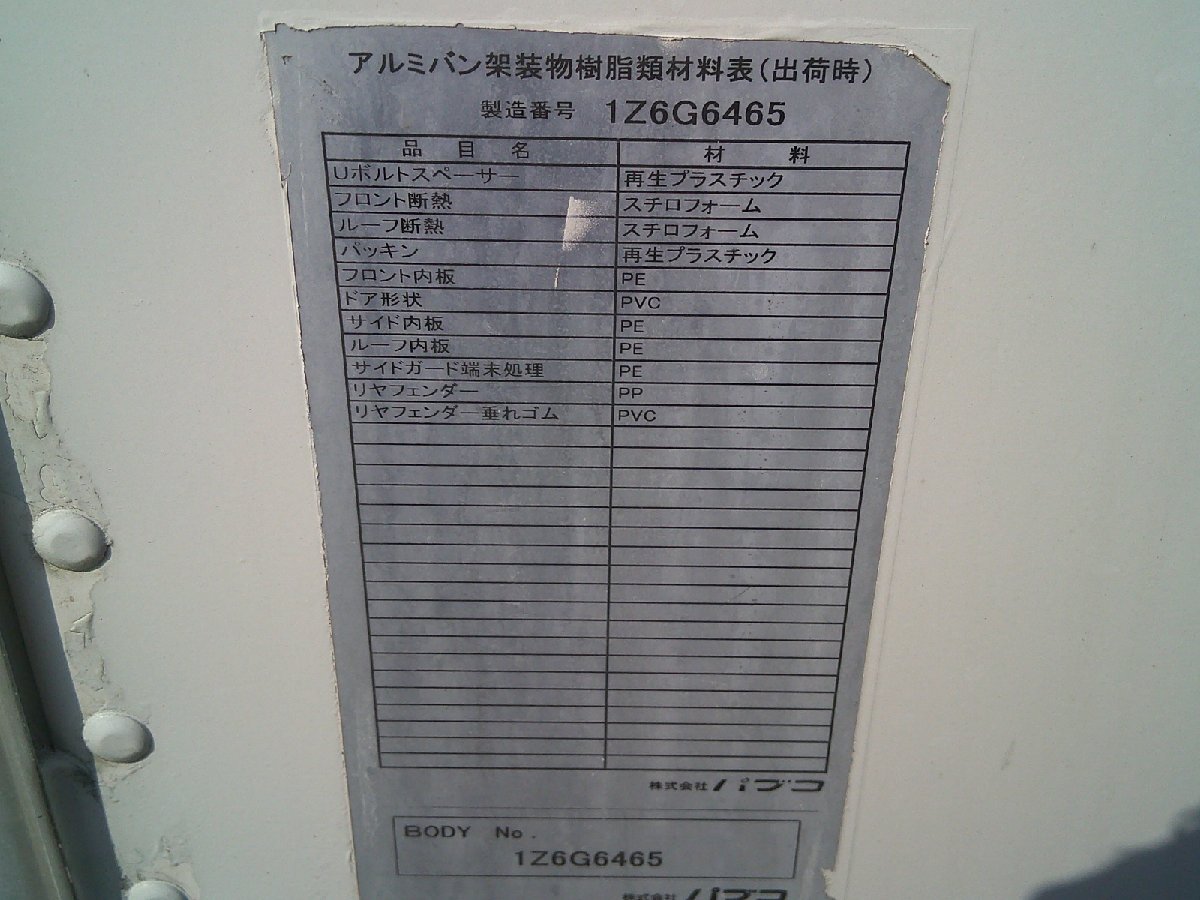 アルミバン架装物樹脂類材料表(出荷時)
製造番号 1Z6G6465
品目名 材料
Uボルトスペーサー 再生プラスチック
フロント断熱 スチロフォーム
ルーフ断熱 スチロフォーム
パッキン 再生プラスチック
フロント内板 PE
ドア形状 PVC
サイド内板 PE
ルーフ内板 PE
サイドガード端末処理 PE
リヤフェンダー PP
リヤフェンダー垂れゴム PVC
株式会社パブコ
BODY No.
1Z6G6465
株式会社パブコ